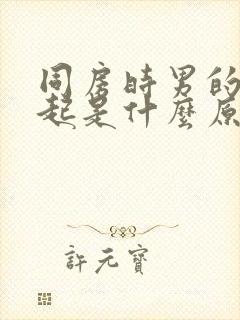 同房時男的
起是什麼原
許元寶